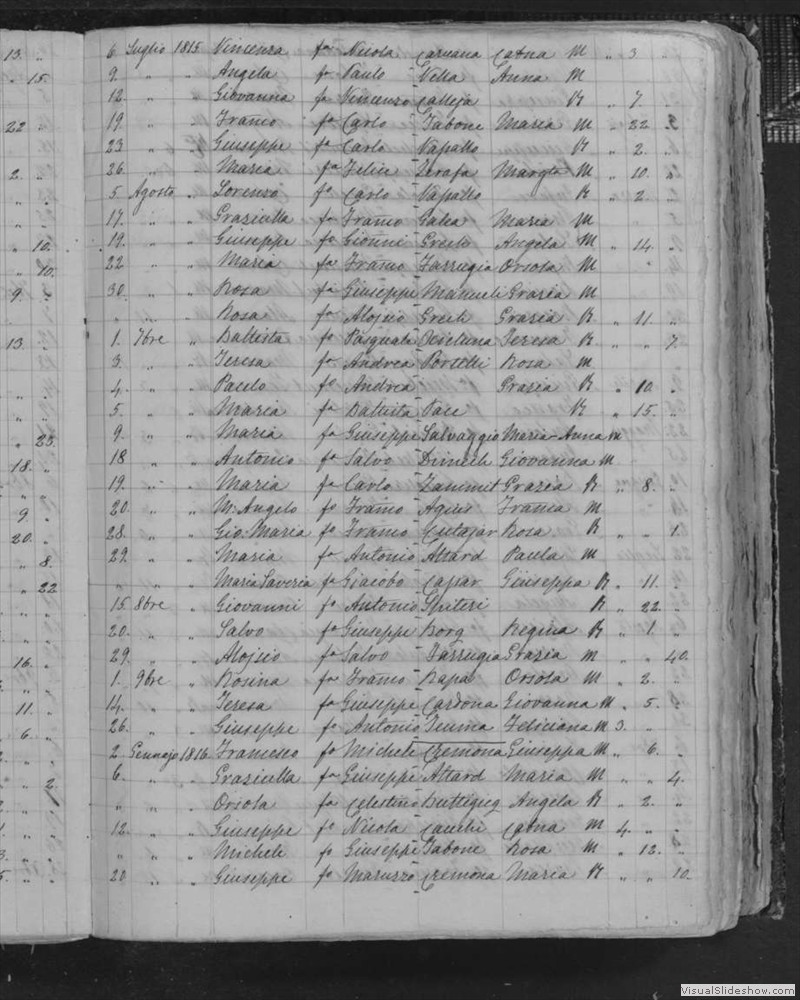 13. „ 6 Luglio 1815 Vincenza fa Nicola Caruana Catna M „ 3 „
„ 15. 9. „ „ Angela fa Paulo Vella Anna M
12. „ „ Giovanna fa Vincenzo Calleja R „ 7. „
22 „ 19. „ „ Franco fo Carlo Tabone Maria M „ 22
23 „ „ Giuseppe fo Carlo Napallo R „ 2. „
2. „ 26. „ „ Maria fa Felice Zerafa Margta M „ 10. „
5 Agosto „ Lorenzo fo Carlo Napallo R „ 2. „
17. „ „ Graziulla fa Franco Galea Maria M
„ 10. 19. „ „ Giuseppe fo Gionni Grech Angela M „ 14. „
„ 10. 22 „ „ Maria fa Franco Farrugia Orsola M
9. „ 30. „ „ Rosa fa Giuseppe Manueli Grazia M
„ „ „ Rosa fa Alojsio Grech Grazia R „ 11. „
13. „ 1. 7bre „ Battista fo Pasquale Teresa R „ „ 7.
3. „ „ Teresa fa Andrea Portelli Rosa M
4. „ „ Paolo fo Andrea Grazia R „ 10. „
5. „ „ Maria fa Battista Pace R „ 15. „
„ 23. 9. „ „ Maria fa Giuseppe Salvaggio Maria Anna M
18. „ 18 „ „ Antonio fo Salvo Dimech Giovanna M
19. „ „ Maria fa Carlo Zammit Grazia R „ 8. „
9. „ 20. „ „ M. Angelo fo Franco Agius Franca M
20. „ 28. „ „ Gio Maria fo Franco Cutajar Rosa R „ „ 1.
„ 8. 29. „ „ Maria fa Antonio Attard Paula M
„ 22 „ „ „ Maria Saveria fa Giacobo Caxar Giuseppa R „ 11. „
15. 8bre „ Giovanni fo Antonio Spiteri R „ 22. „
20. „ „ Salvo fo Giuseppe Borg Regina R „ 1. „
16. „ 29. „ „ Alojsio fo Salvo Farrugia Grazia M „ „ 40.
1. 9bre „ Rosina fa Franco Bapa Orsola M „ 2. „
11. „ 14. „ „ Teresa fa Giuseppe Cardona Giovanna M „ 5. „
6. „ 26. „ „ Giuseppe fo Antonio Teuma Feliciana M 3. „ „
2 Gennajo 1816 Francesco fo Michele Cremona Giuseppa M „ 6. „
„ 2. 6. „ „ Graziulla fa Giuseppe Attard Maria M „ „ 4.
„ „ „ Orsola fa Celestino Buttigieg Angela R „ 2. „
12. „ „ Giuseppe fo Nicola Cauchi Catna M 4. „ „
„ „ „ Michele fo Giuseppe Tabone Rosa M „ 12. „
20 „ „ Giuseppe fo Maruzzo Cremona Maria R „ „ 10.
VisualSlideshow.com